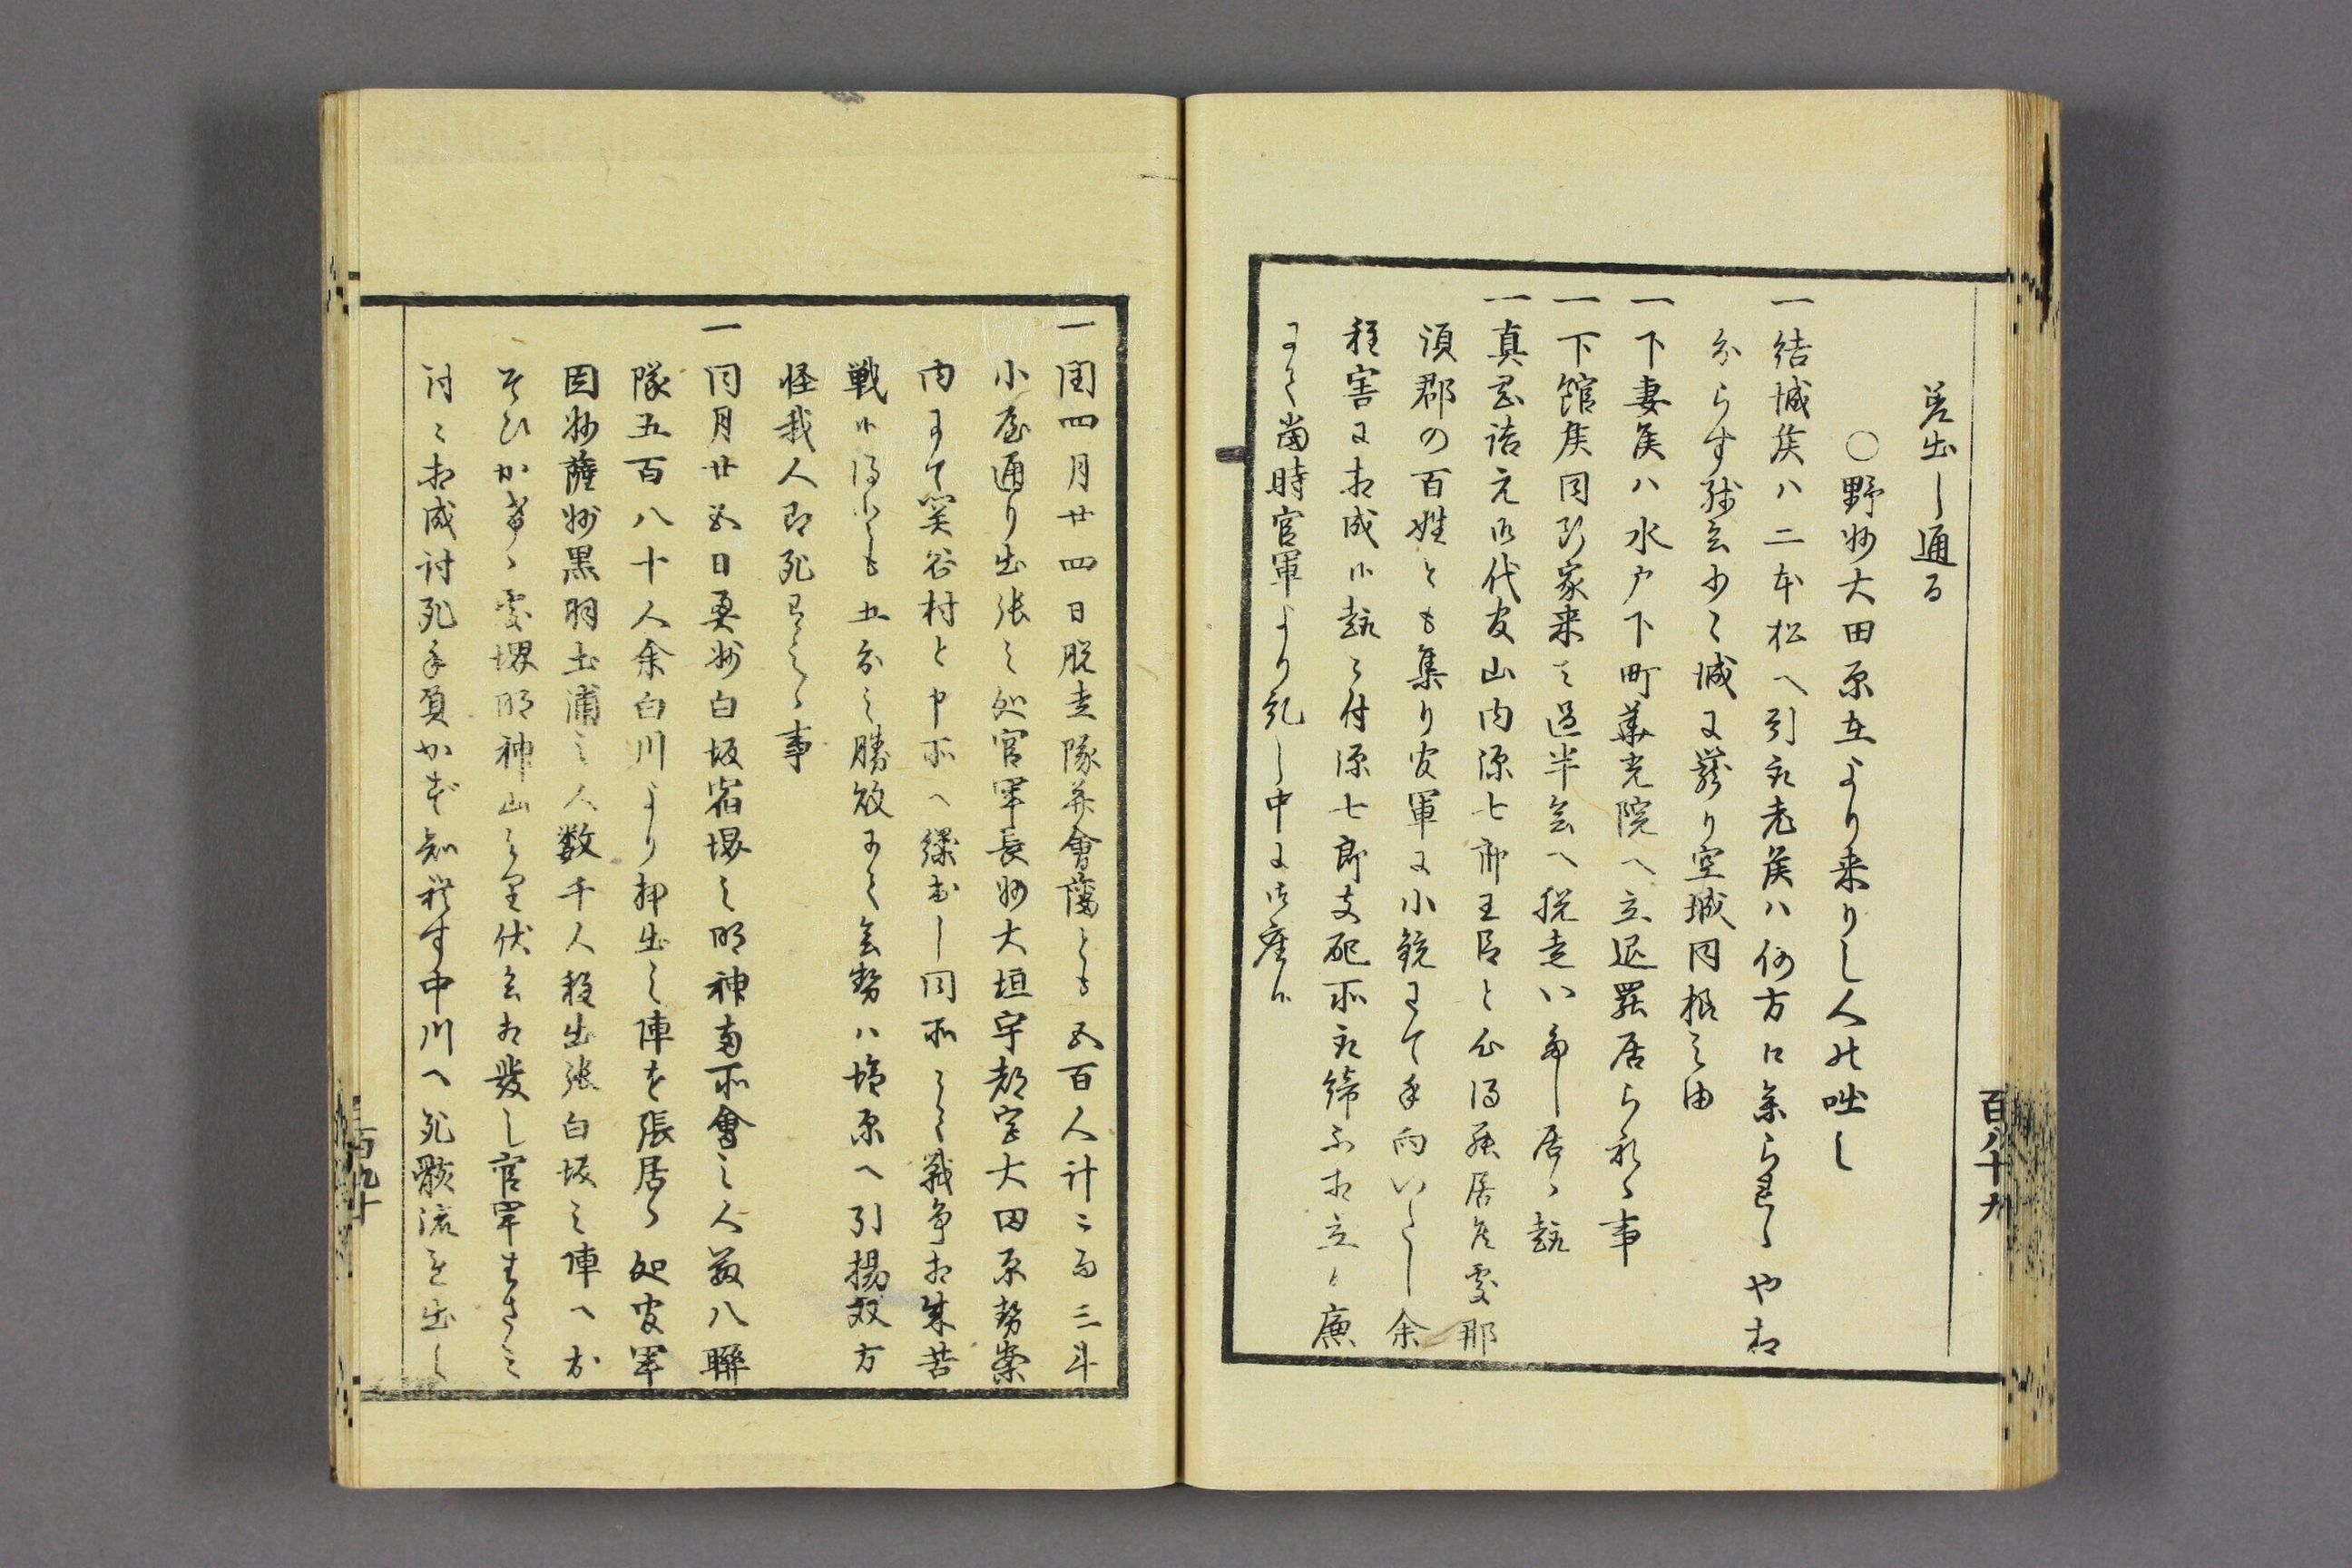 差出し通る
○野州大田原在より来りし人の咄し
一結城侯ハ二本松へ引取老侯ハ何方に参られしや相
分らす残兵少々城に残り空城同様之由
一下妻侯ハ水戸下町華光院へ立退罷居られ候事
一下館侯同断家来之過半会へ脱走いたし居候趣
一真岡詰元御代官山内源七郎王臣と心得罷居候処那
須郡の百姓とも集り官軍に小銃にて手向いたし余
程害に相成候趣に付源七郎支配所取締不相立之廉
にて当時官軍より糺し中に御座候
百八十九
一閏四月廿四日脱走隊并會藩とも五百人計ニ而三斗
小屋通り出張之処官軍長州大垣宇都宮大田原勢崇
内にて関谷村と申所へ繰出し同所にて戦争相成苦
戦候得とも五分之勝敗にて会勢ハ塩原へ引揚双方
怪我人即死有之候事
一同月廿五日奥州白坂宿堺之明神両所會之人数八聯
隊五百八十人余白川より押出し陣を張居候処官軍
因州薩州黒羽土浦之人数千人程出張白坂之陣へお
そひかゝり候処堺明神山之里伏兵相発し官軍はさみ
討ニ相成討死手負かず知れす中川へ死骸流し出し
百九十